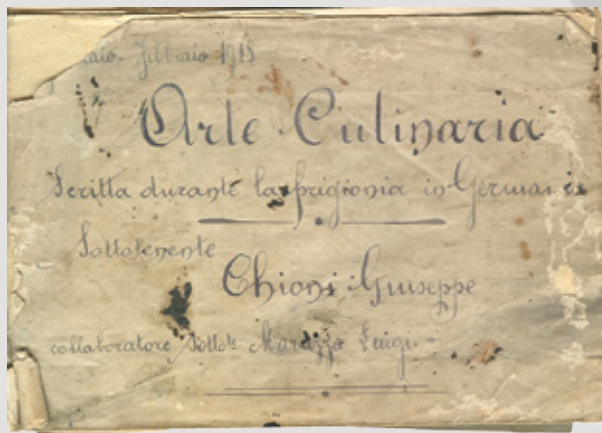 aio-Febbraio 1918
Arte Culinaria
Scritta durante la prigionia in Germania
Sottotenente
Chioni Giuseppe
collaboratore Sottote Marazza Luigi